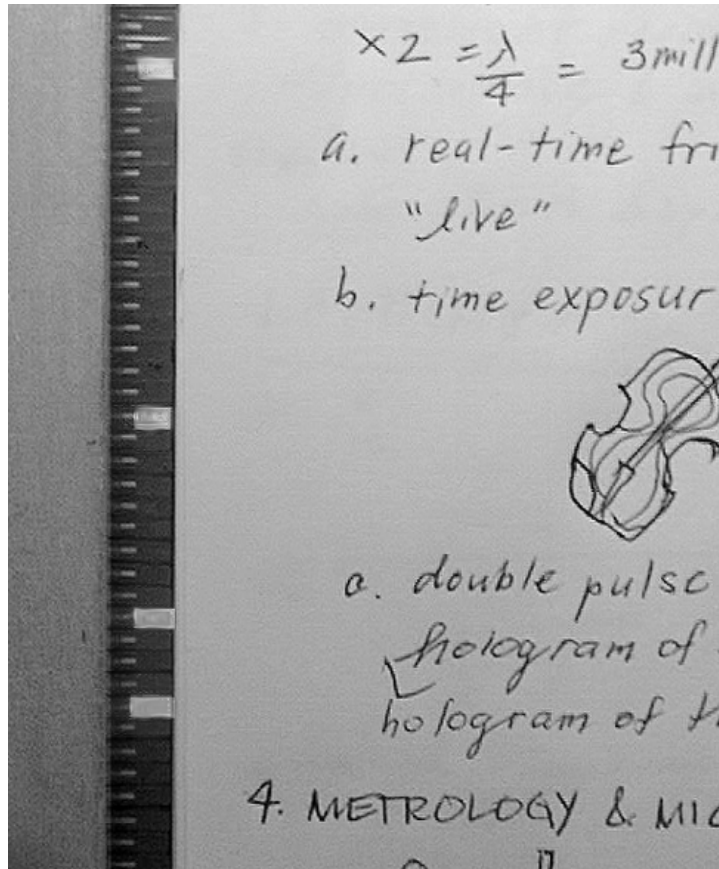 ×2 = λ/4 = 3mill
a. real-time fri
"live"
b. time exposur
c. double pulse
hologram of
hologram of th
4. METROLOGY & MIC